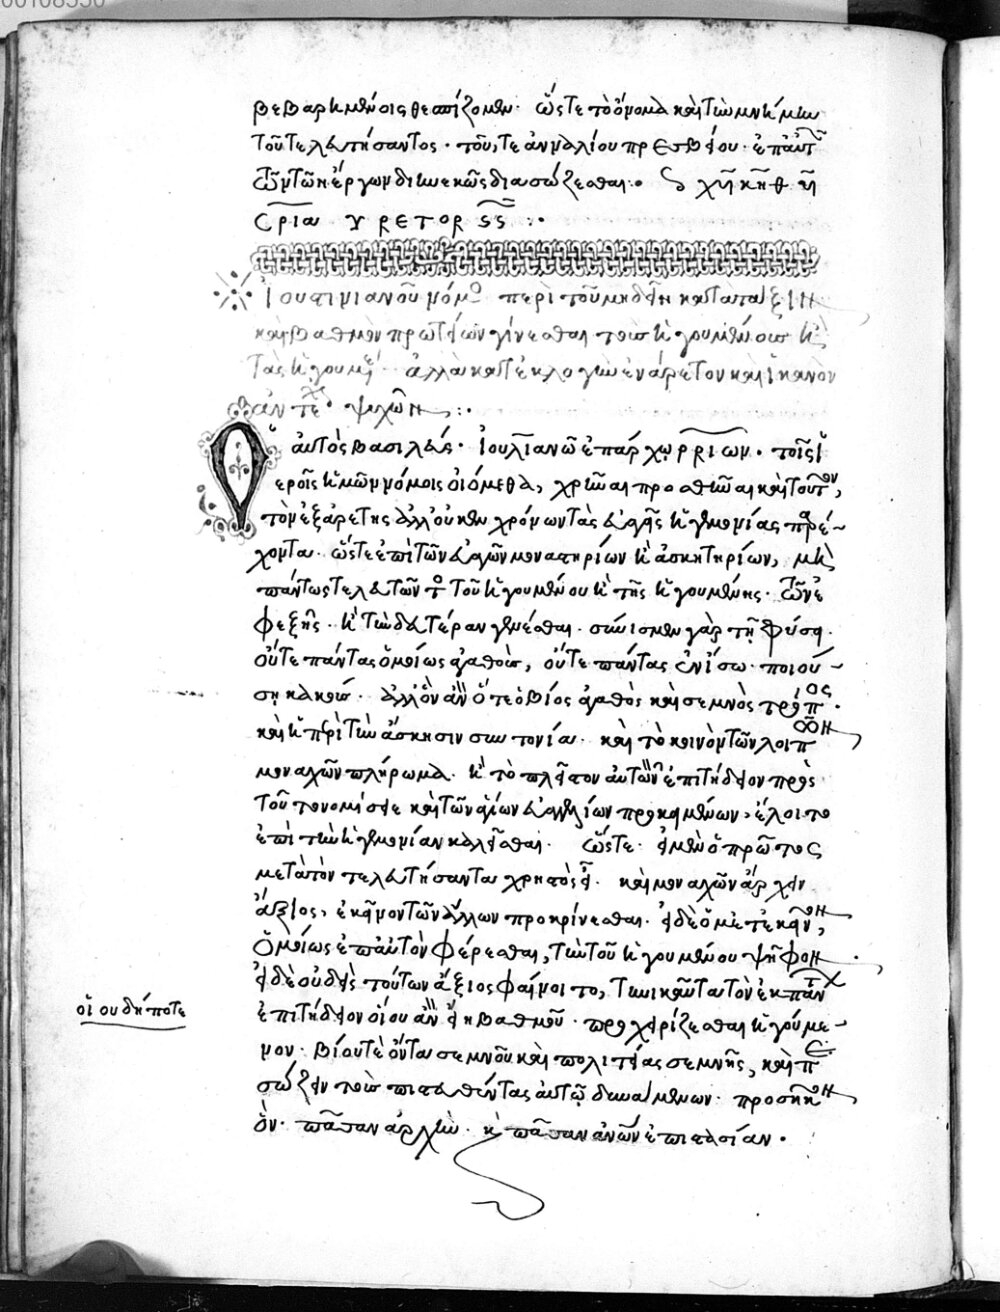 βεβαρημένοις θεσπίζομεν· ὥστε τὸ ὄνομα καὶ τὴν μνήμην
τοῦ τελευτήσαντος· τοῦ τε ἀναλίου πρεσβείου· ἐπ αὐτ
τῶν ἔργων διηνεκῶς διασώζεσθαι·
Ἰουστινιανοῦ νόμο περὶ τοῦ μηδὲν κατὰ τάξιν
καὶ βαθμὸν πρωτείων γίνεσθαι τοὺς ἡγουμένους κ
τὰς ἡγουμέ ἀλλὰ κατ ἐκλογὴν ἐνάρετον καὶ ἱκανὸν
ψυχῶν
Ὁ αὐτὸς βασιλεύς· Ἰουλιανῶ ἐπάρχῳ πραιτωρίων· τοῖς ἱ
εροῖς ἡμῶν νόμοις οἰόμεθα, χρῆναι προσθεῖναι καὶ τοῦτ,
τὸν ἐξ ἀρετῆς ἀλλ οὐκ ἐν χρόνων τὰς εὐαγεῖς ἡγεμονίας παρέ-
χοντα· ὥστε ἐπὶ τῶν εὐαγῶν μοναστηρίων κ ἀσκητηρίων, μὴ
πάντως τελευτῶντ τοῦ ἡγουμένου κ τῆς ἡγουμένης· τῶν ἐ
φεξῆς· κ τὴν δευτέραν γενέσθαι· σύνισμεν γὰρ τῇ φύσει
οὔτε πάντας ὁμοίως ἀγαθοὺς, οὔτε πάντας ἐν ἴσῳ ποιού-
σῃ κακούς· ἀλλ ὃν ἂν ὅ τε ὁ βίος ἀγαθὸς καὶ σεμνὸς τρόπος·
καὶ ἡ περὶ τὴν ἄσκησιν συντονία· καὶ τὸ κοινὸν τῶν λοιπῶν
μοναχῶν πλήρωμα· κ τὸ πλεῖστον αὐτῶν ἐπιτήδειον πρὸς
τοῦτο νομίσειε καὶ τῶν ἁγίων εὐαγγελίων προκειμένων, ἕλοιτο
ἐπὶ τὴν ἡγεμονίαν καλεῖσθαι· ὥστε· εἰ μὲν ὁ πρῶτος
μετὰ τὸν τελευτήσαντα χρηστὸς εἴη· καὶ μοναχῶν ἄρχειν
ἄξιος, ἐκεῖνον τῶν ἄλλων προκρίνεσθαι· εἰ δὲ ὁ μετ ἐκεῖνον,
ὁμοίως ἐπ αὐτὸν φέρεσθαι, τὴν τοῦ ἡγουμένου ψῆφον·
εἰ δὲ οὐδεὶς τούτων ἄξιος φαίνοιτο, τηνικαῦτα τὸν ἐκ πάντ
ἐπιτήδειον οἵου ἂν εἴη βαθμοῦ· προχειρίζεσθαι ἡγούμε-
νον· βίου τε ὄντα σεμνοῦ καὶ πολιτείας σεμνῆς, καὶ π
σώζειν τοὺς πιστευθέντας αὐτῷ δυναμένων· προσῆκον
ὂν· πᾶσαν ἀρχὴν· κ πᾶσαν ἀνῶν ἐπιστασίαν·
οἱουδήποτε